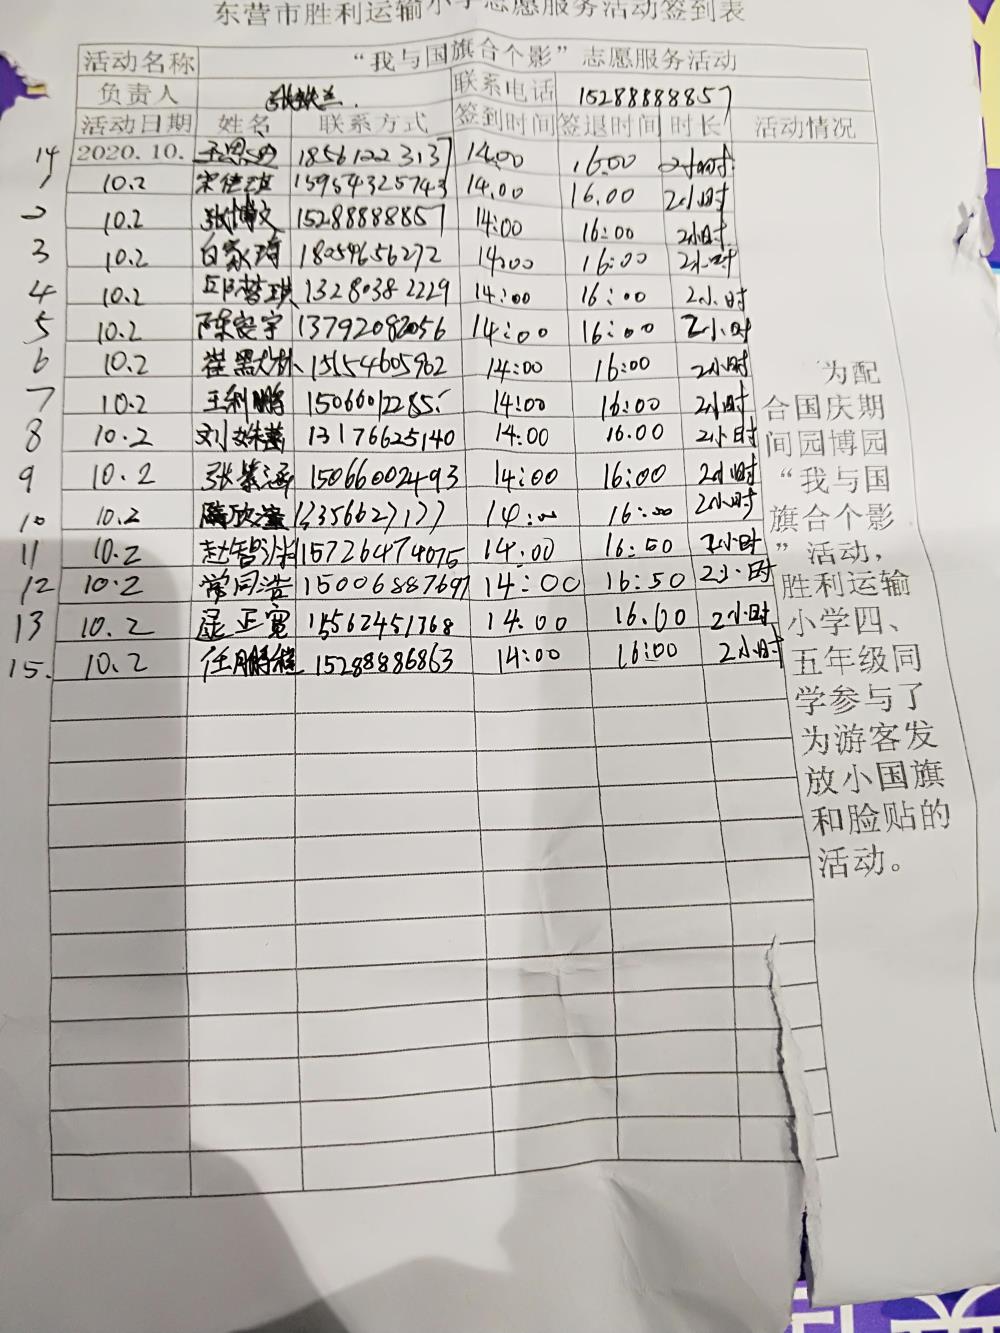 东营市胜利运输小学志愿服务活动签到表
活动名称 “我与国旗合个影”志愿服务活动
负责人 联系电话 15288888857
活动日期 姓名 联系方式 签到时间 签退时间 时长 活动情况
14 2020.10. 18561222313 14:00 16:00 2小时
1 10.2 15954325743 14.00 16.00 2小时
2 10.2 张博文 15288888857 14:00 16:00 2小时
3 10.2 白家琦 18054656272 14:00 16:00 2小时
4 10.2 13280382229 14:00 16:00 2小时
5 10.2 陈宸宇 13792082056 14:00 16:00 2小时
6 10.2 崔默林 15154605962 14:00 16:00 2小时
7 10.2 王利鹏 15066012285 14:00 16:00 2小时
8 10.2 刘姝菡 13176625140 14:00 16.00 2小时
9 10.2 张紫涵 15066002493 14:00 16:00 2小时
10 10.2 13356627177 14:00 16:00 2小时
11 10.2 15726474075 14:00 16:50 2小时
12 10.2 常同浩 15006887697 14:00 16:50 2小时
13 10.2 15562451368 14.00 16.00 2小时
15. 10.2 任鹏程 15288886863 14:00 16:00 2小时
为配
合国庆期
间园博园
“我与国
旗合个影
”活动，
胜利运输
小学四、
五年级同
学参与了
为游客发
放小国旗
和脸贴的
活动。